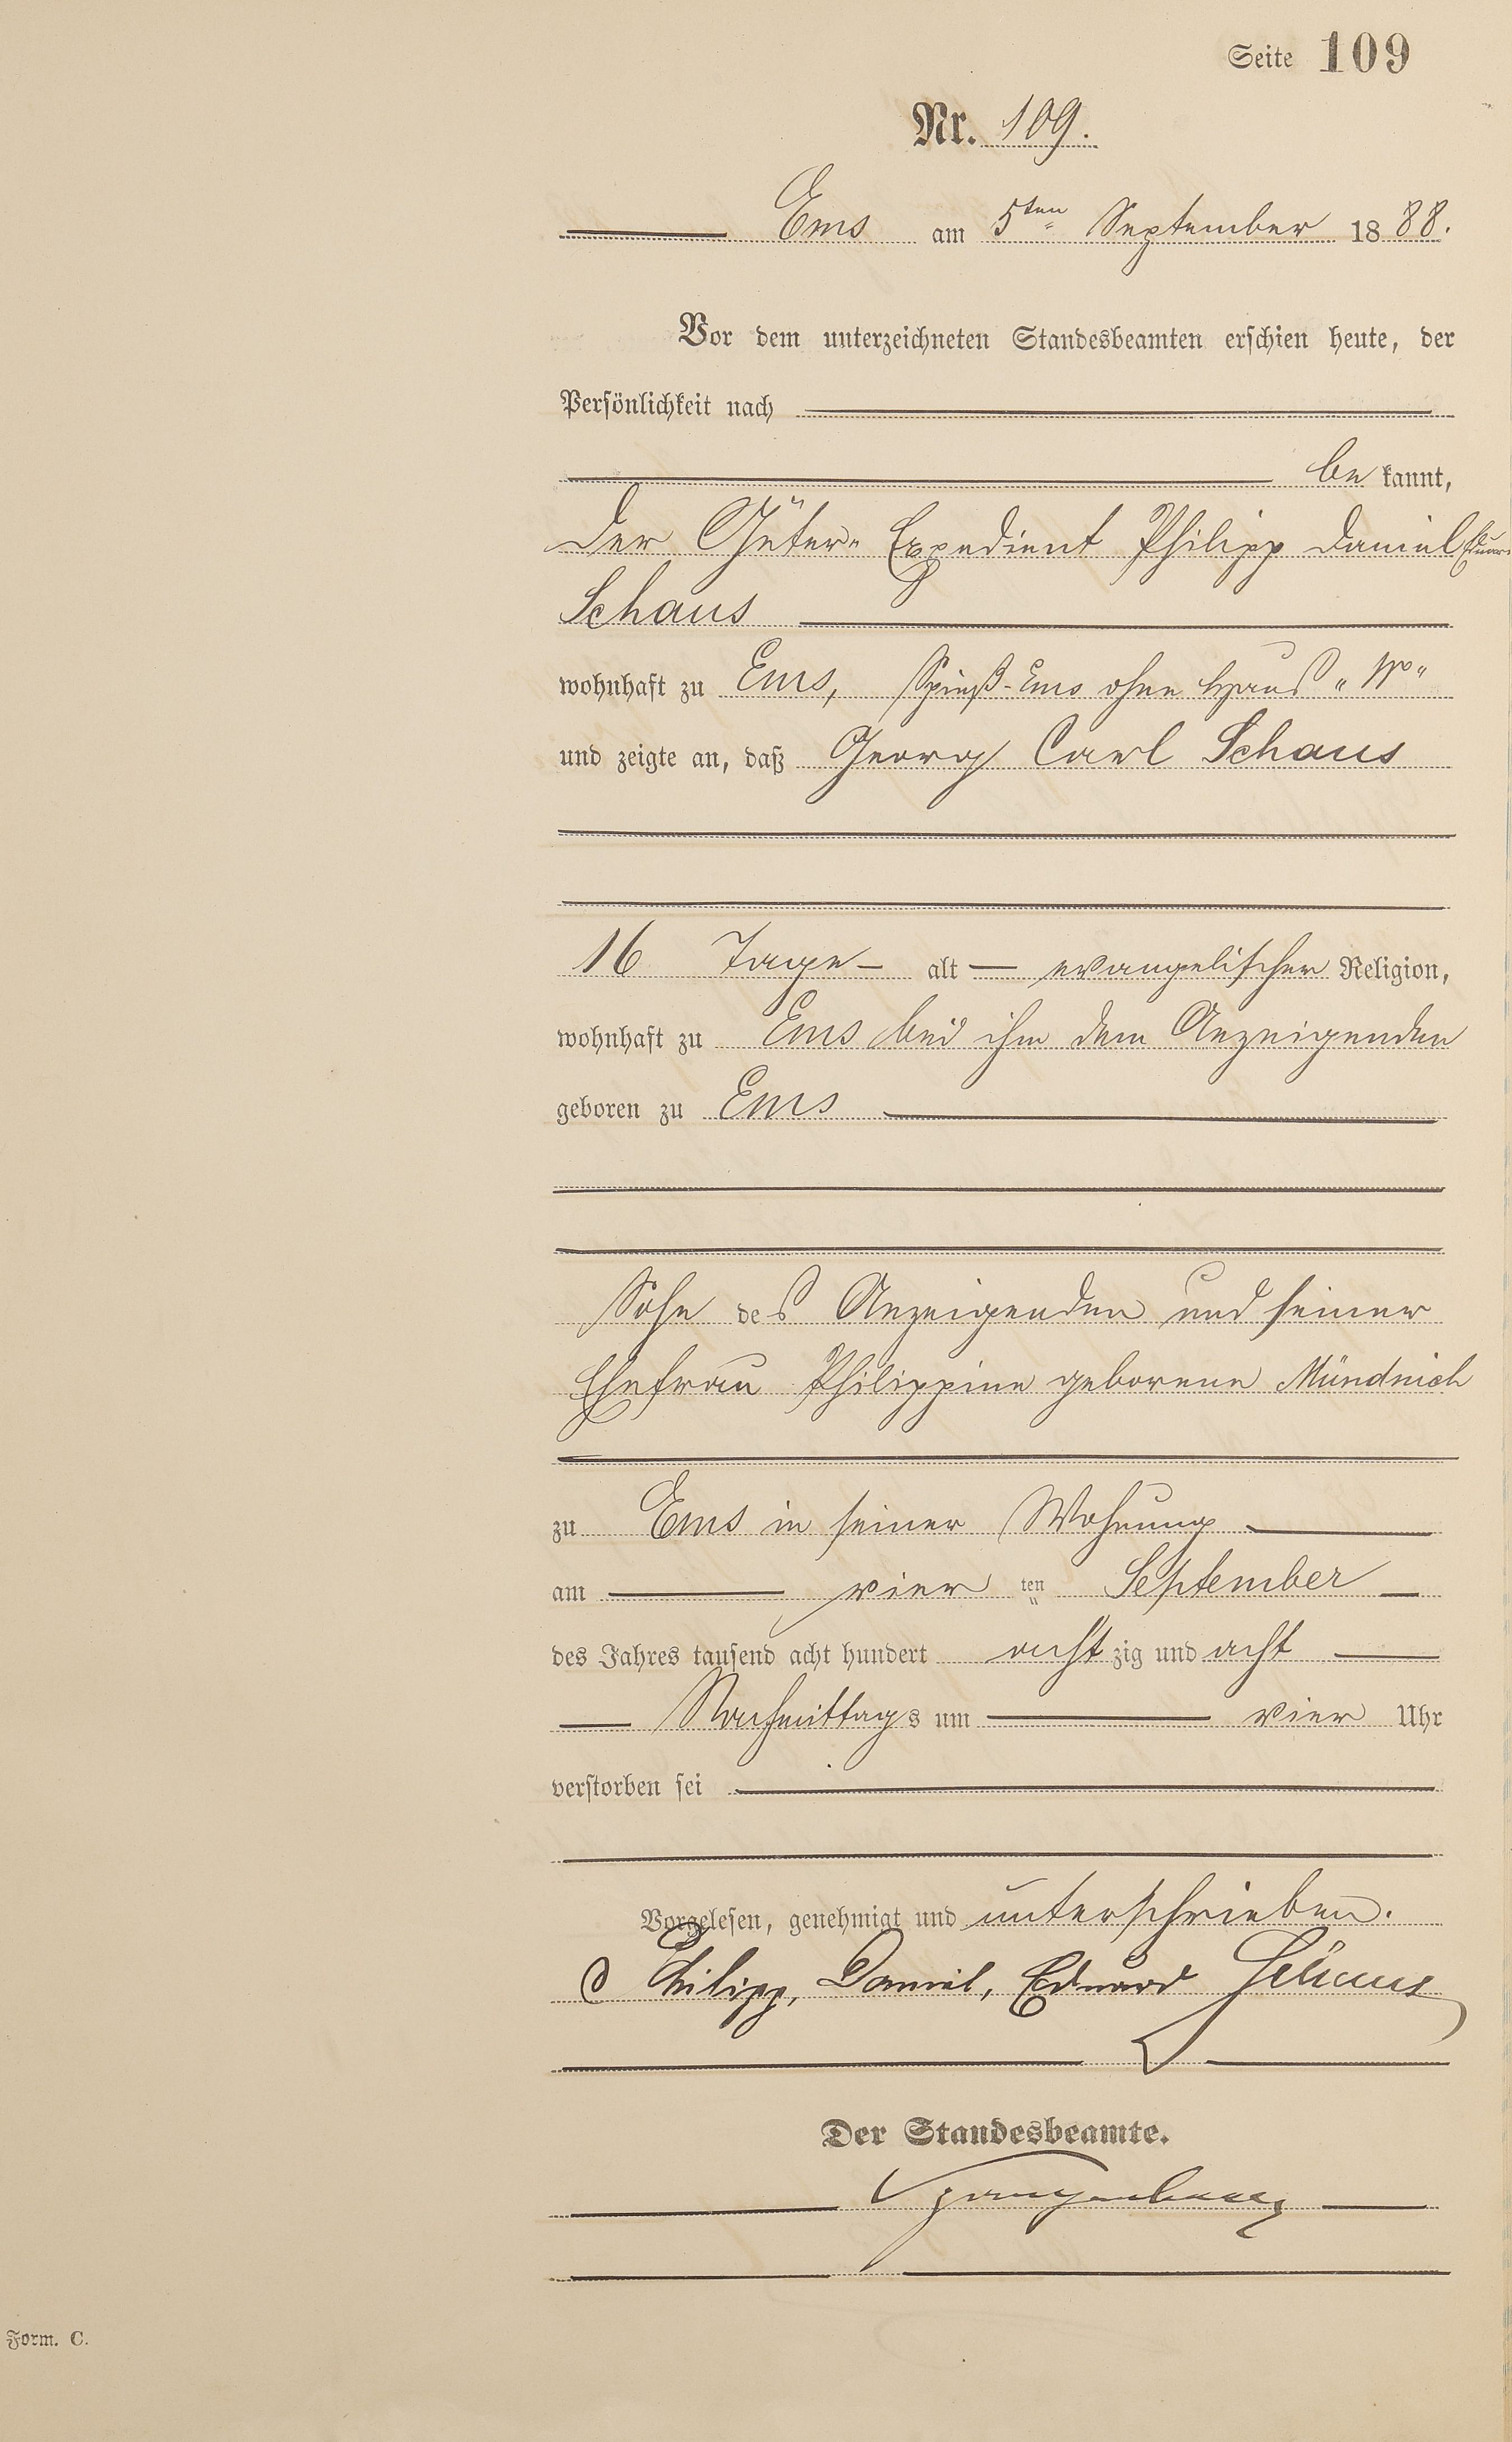 Seite 109
Nr. 109.
Ems am 5ten September 1888.
Vor dem unterzeichneten Standesbeamten erschien heute, der
Persönlichkeit nach
be kannt,
der Güter- Expedient Philipp Daniel Eduard
Schaus
wohnhaft zu Ems, Spieß-Ems ohne Haus "No"
und zeigte an, daß Georg Carl Schaus
16 Tage alt evangelischer Religion,
wohnhaft zu Ems bei ihm dem Anzeigenden
geboren zu Ems
Sohn des Anzeigenden und seiner
Ehefrau Philippine geborene Mündnich
zu Ems in seiner Wohnung
am vier ten September
des Jahres tausend acht hundert acht zig und acht
Nachmittags um vier Uhr
verstorben sei
Vorgelesen, genehmigt und unterschrieben.
Philipp, Daniel, Eduard Schaus
Der Standesbeamte.
Spangenberg
Form. C.